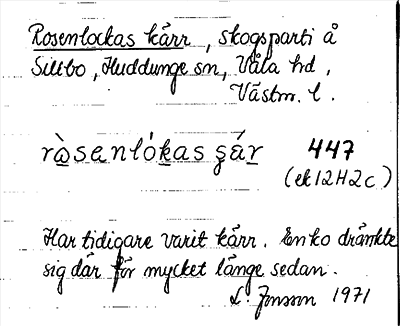 Rosenlockas kärr, skogsparti å
Sillbo, Huddunge sn, Våla hd,
Västm. l.
rὰsenlókas sá̰r 447
(ek 12H2c)
Har tidigare varit kärr. En ko dränkte
sig där för mycket länge sedan.
L. Jonsson 1971